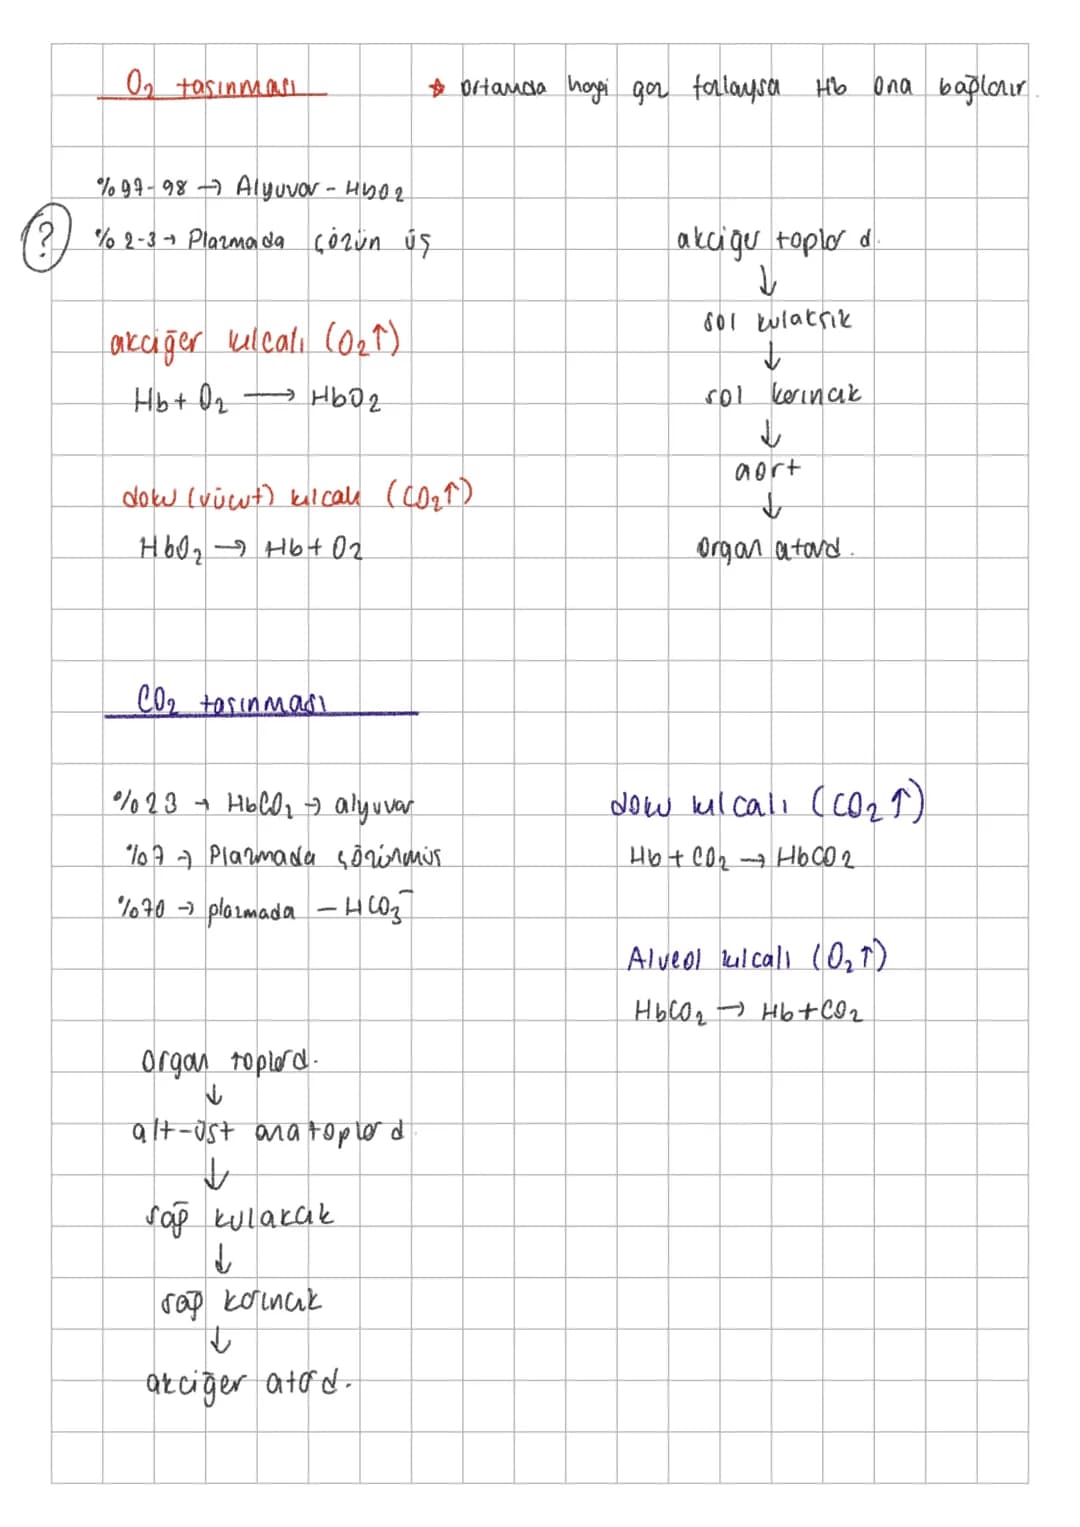 O₂ taşınması
* ortamda hangi gaz fazlaysa Hb ona bağlanır.
%97-98 → Alyuvar - HbO2
? %2-3 → Plazmada çözün üş
akciğer toplar d.
↓
sol kulakçık
↓
sol karıncık
↓
aort
↓
organ atard.
akciğer kılcalı (O₂↑)
Hb + O₂ → HbO2
doku (vücut) kılcalı (CO₂↑)
HbO₂ → Hb + O2
CO₂ taşınması
%23 → HbCO₂ → alyuvar
%7 → Plazmada çözünmüş
%70 → plazmada - HCO₃⁻
doku kılcalı (CO₂↑)
Hb + CO₂ → HbCO2
Alveol kılcalı (O₂↑)
HbCO₂ → Hb + CO₂
organ toplard.
↓
alt-üst ana toplar d.
↓
sağ kulakcık
↓
sağ karıncık
↓
akciğer atard.